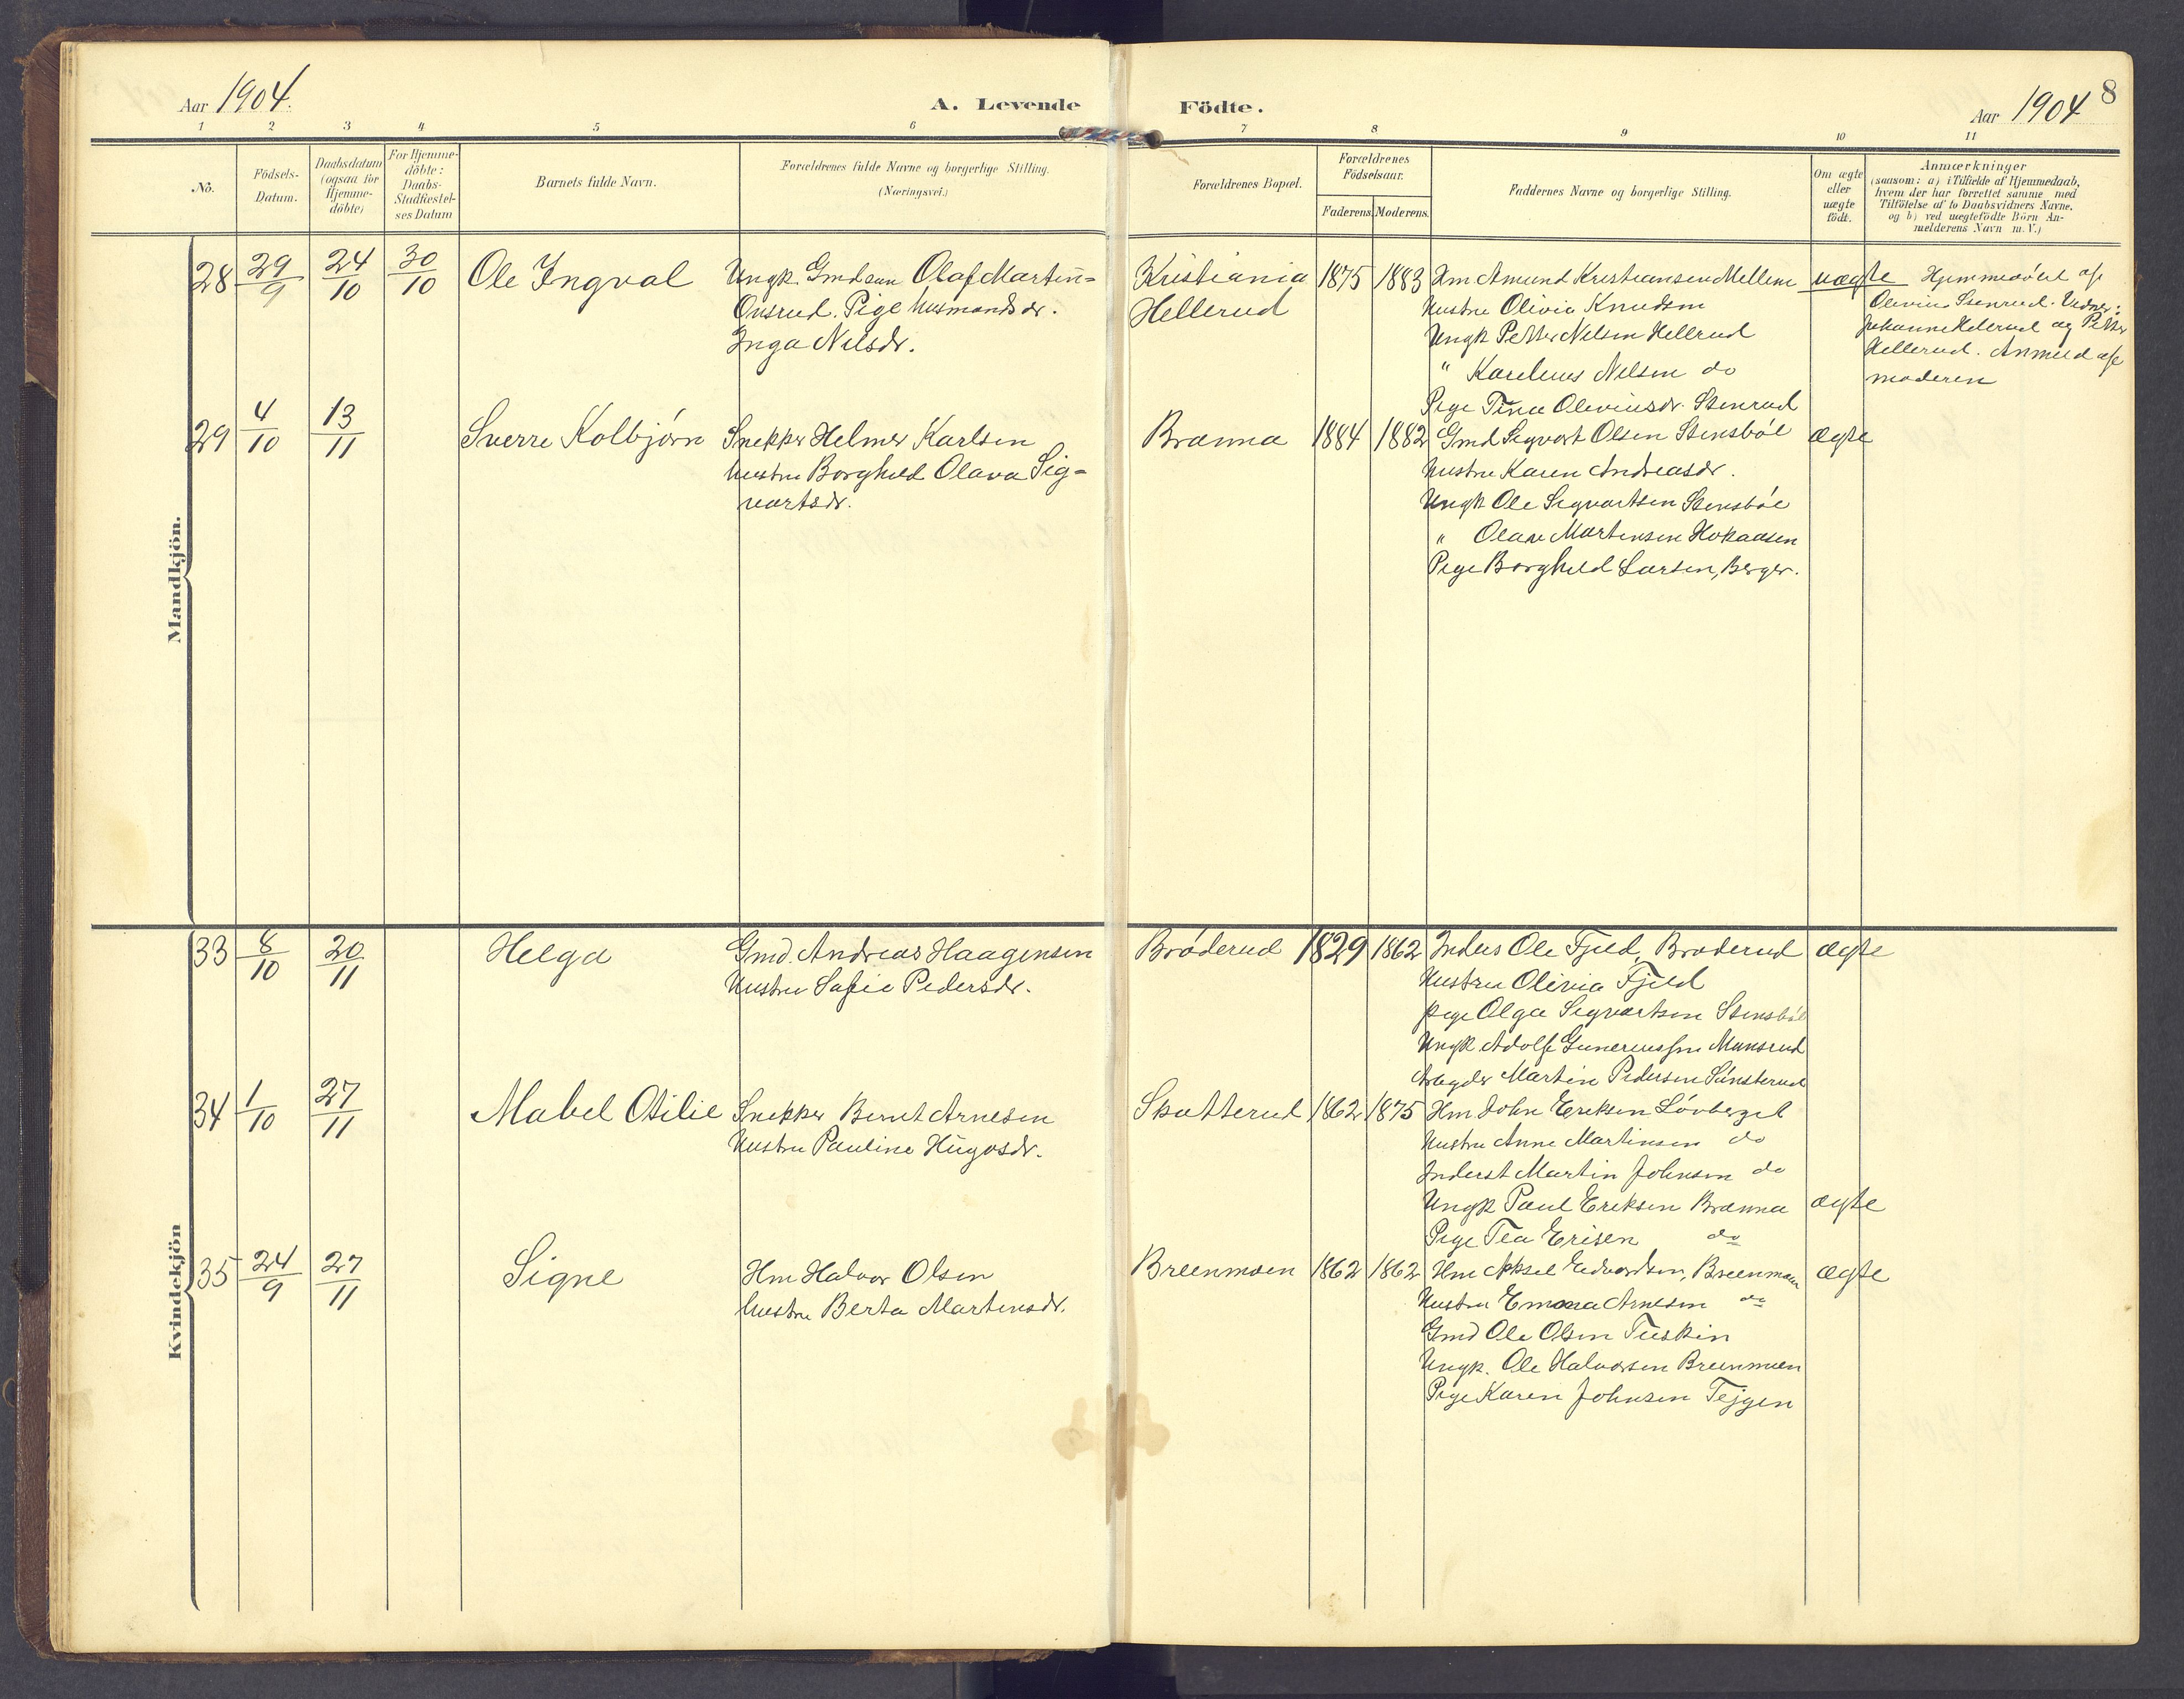 Aar 1904.
A. Levende Födte.
Aar 1904
8
1 2 3 4 5 6 7 8 9 10 11
No.
Födsels-
Datum.
Daabsdatum
(ogsaa for
Hjemme-
döbte)
For Hjemme-
döbte:
Daabs-
Stadfæstel-
ses Datum
Barnets fulde Navn.
Forældrenes fulde Navne og borgerlige Stilling.
(Næringsvei.)
Forældrenes Bopæl.
Forældrenes
Födselsaar.
Faderens. Moderens.
Faddernes Navne og borgerlige Stilling.
Om ægte
eller
uægte
födt.
Anmærkninger
(saasom: a) i Tilfælde af Hjemmedaab,
hvem der har forrettet samme med
Tilföielse af to Daabsvidners Navne,
og b) ved uægtefödte Börn An-
melderens Navn m. V.)
Mandkjön.
28 29/9 24/10 30/10 Ole Ingval
Ungk. Gmdsøn Olaf Martin-
Onsrud. Pige husmandsdr.
Inga Nilsdr.
Kristiania
Hellerud
1875 1883
Hm Amund Kristiansen Mellem
Hustru Olivia Knudsen
Ungk Petter Nilsen Hellrud
" Karelius Nilsen do
Pige Tina Oleviusdr. Stenrud
uægte
Hjemmedöbt af
Olivius Stenrud. Vidner:
Johanne Hellerud og Petter
Hellerud. Anmeld af
moderen
29 4/10 13/11 Sverre Kolbjørn
Snekker Helmer Karlsen
Hustru Borghild Olava Sig-
vartsdr.
Brænna 1884 1882
Gmd Sigvart Olsen Stensböl
Hustru Karen Andreasdr.
Ungk Ole Sigvartsen Stensböl
" Olav Martinsen Hokaasen
Pige Borghild Larsen, Berger.
ægte
Kvindekjön
33 8/10 20/11 Helga
Gmd. Andreas Haagensen
Hustru Safie Pedersdr.
Bröderud 1829 1862
Inders Ole Fjeld, Bröderud
Hustru Olivia Fjeld
Pige Olga Sigvartsen Stensböl
Ungk Adolf Gunerius sen Munsrud
Arbeyder Martin Pedersen Sünsterud
ægte
34 1/10 27/11 Mabel Otilie
Snekker Bernt Arnesen
Hustru Pauline Hugosdr.
Skatterud 1862 1875
Hm John Eriksen Lövberget
Hustru Anne Martinsen do
Inderst Martin Johnsen do
Ungk Paul Eriksen Brænna
Pige Tea Erisen do
ægte
35 24/9 27/11 Signe
Hm Halvor Olsen
Hustru Berta Martinsdr.
Breenmoen 1862 1862
Hm Aksel Edvardsen, Breenmoen
Hustru Emma Arnesen do
Gmd Ole Olsen Tuskin
Ungk. Ole Halvorsen Breenmoen
Pige Karen Johnsen Tejgen
ægte